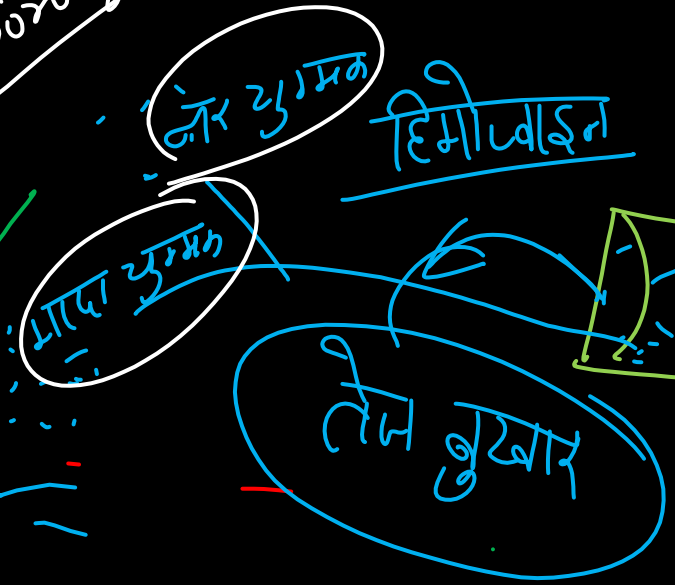 नर युग्मक
हिमोज्वाइन
मादा युग्मक
तेज बुखार